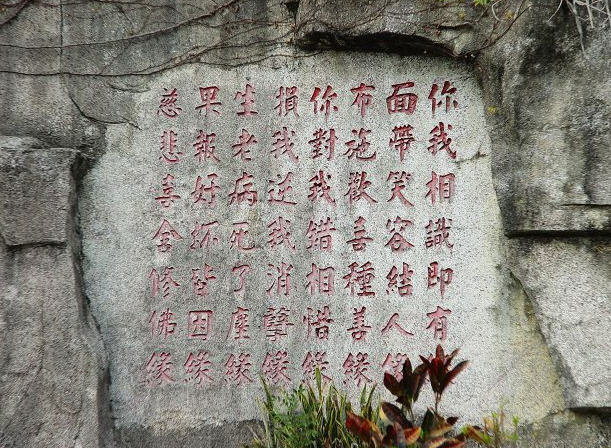 你我相識即有
面帶笑容結人緣
布施歡喜種善緣
你對我錯相惜緣
損我逆我消孽緣
生老病死了塵緣
果報好坏皆因緣
慈悲喜舍修佛緣